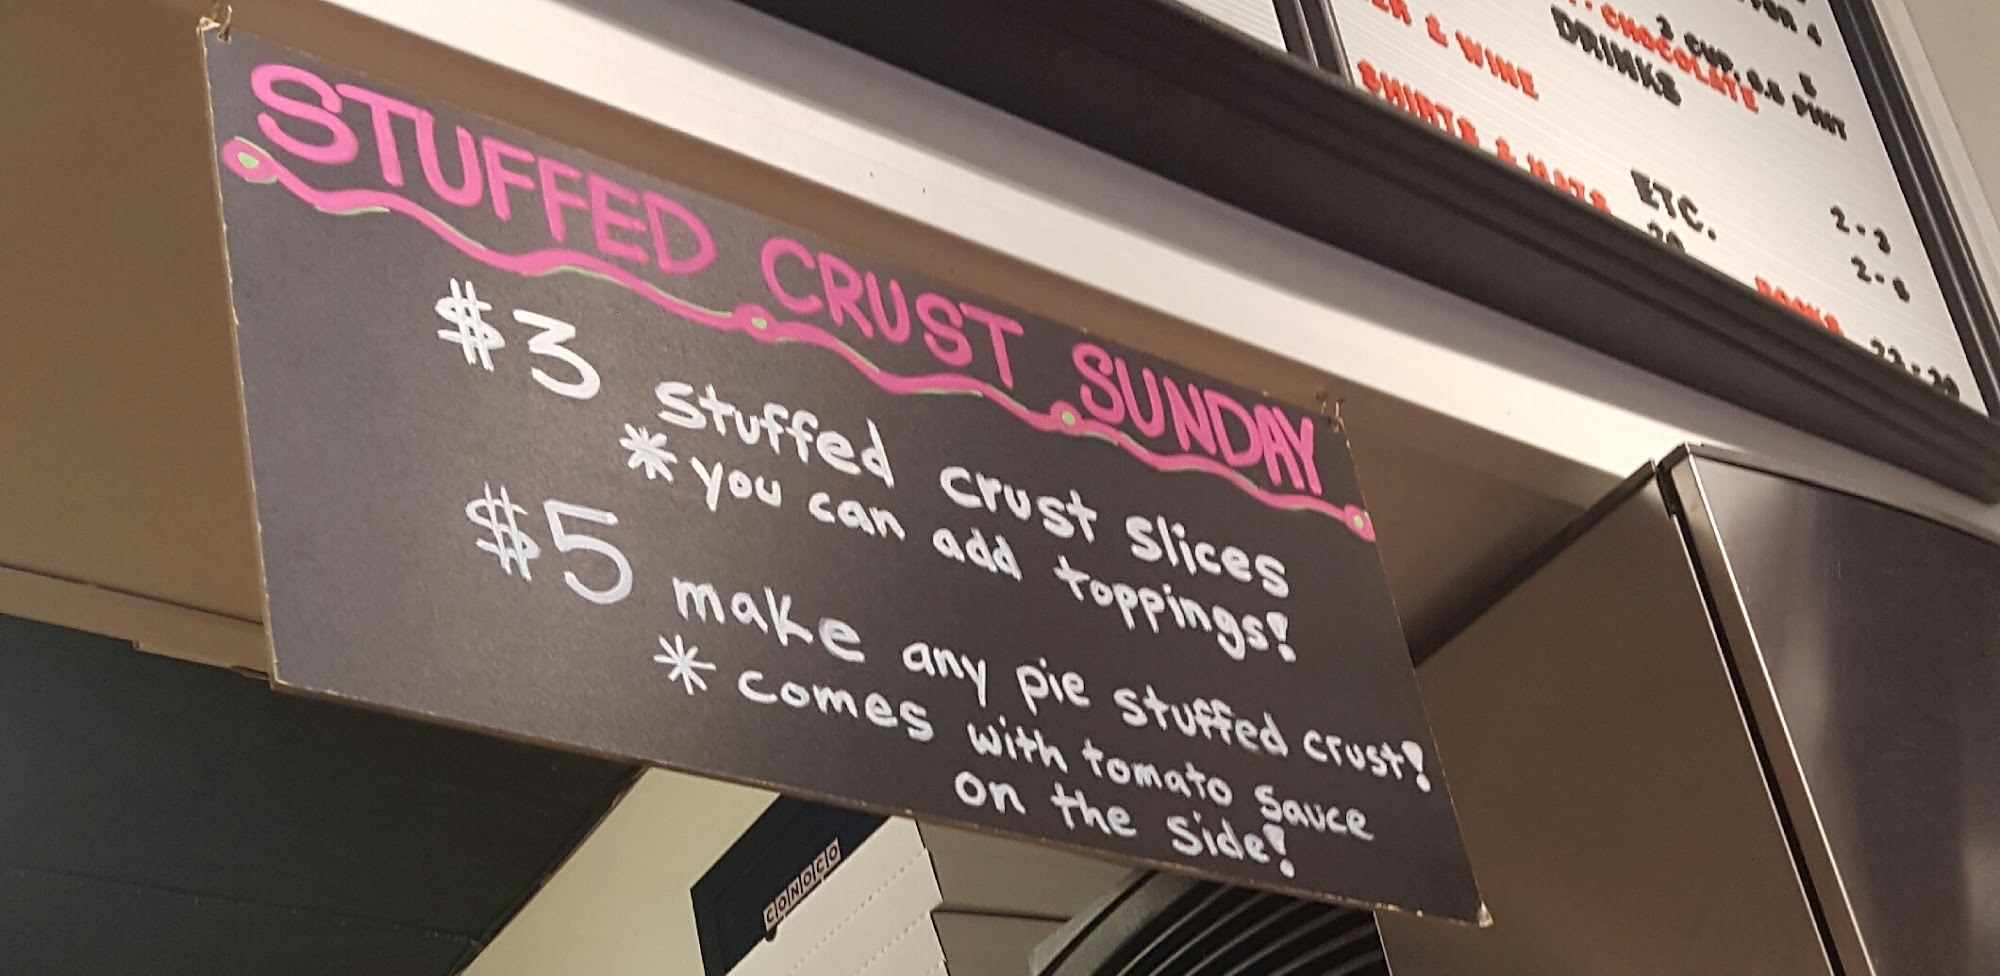 STUFFED CRUST SUNDAY
$3 stuffed crust slices
* you can add toppings!
$5 make any pie stuffed crust!
* comes with tomato sauce
on the side!
CONOCO
& WINE
CHOCOLATE
DRINKS
SHIRTS & HATS
ETC.
20
2-3
2-6